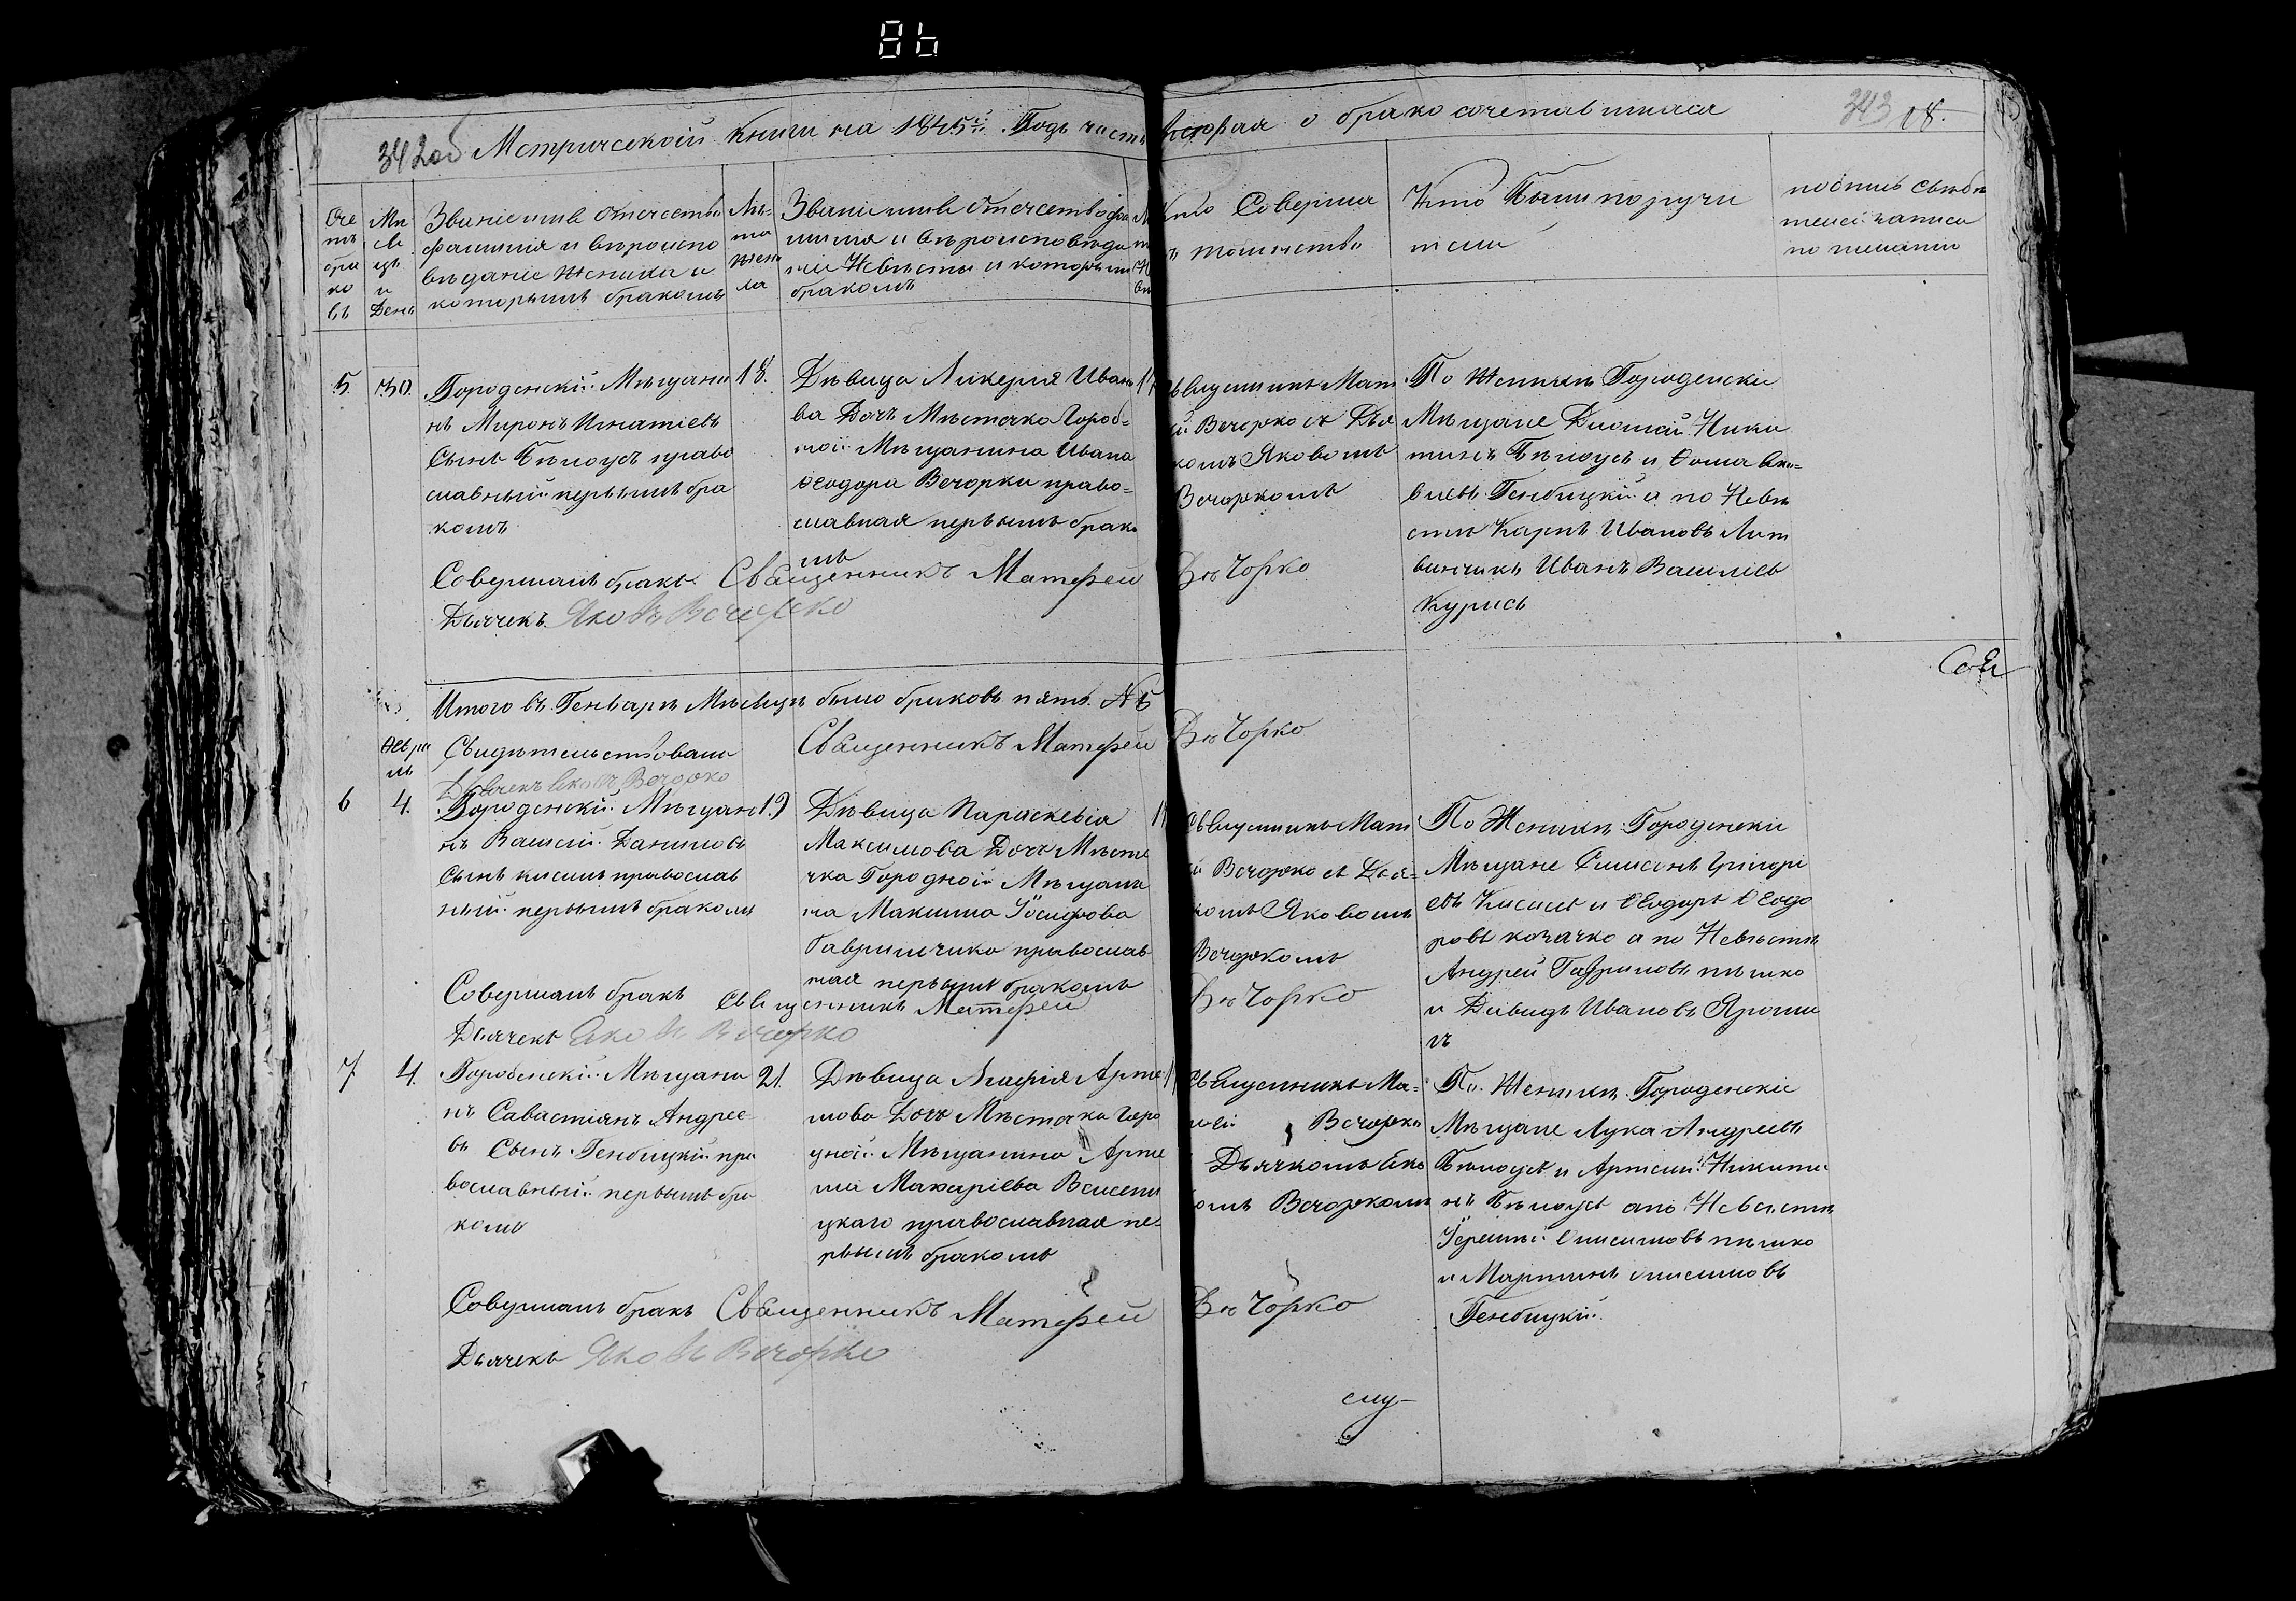 86
342 об Метрической книги на 1845й Годъ часть
вторая о брако сочетавшихся
343 18.
Сче
тъ
бра
ко
въ
Мѣ
ся
цъ
и
День
Званіе имя отечество
фамилія и вѣроиспо
вѣданіе жениха и
которымъ бракомъ
Лѣ-
та
жени
ха
Званіе имя отечество фа
милія и вѣроисповѣда
ніе Невѣсты и которымъ
бракомъ
Кто Соверша
ъ таинство
Кто были поручи
тели
подпись свидѣ
телей записи
по желанію
5.
30.
Городенскій Мѣщани
нъ Миронъ Игнатіевъ
Сынъ Бѣлоусъ право
славный первымъ бра
комъ
18.
Дѣвица Ликерія Ивано
ва Дочь Мѣстечка Город=
ной Мѣщанина Ивана
Ѳеодора Вечорки право=
славная первымъ брако
мъ
Священникъ Матѳ
ей Вечорко съ Дья
комъ Яковомъ
Вечоркомъ
По Женихѣ Городенскіе
Мѣщане Ники
тинъ Бѣлоусъ и Ѳома
Генбицкій а по Невѣ
стѣ Карпъ Ивановъ Лит
винчикъ Иванъ Василіев
Курись
Совершалъ бракъ Священникъ Матѳей Вечорко
Дьячекъ Яковъ Вечорко
Итого въ Генварѣ Мѣсяцѣ было браковъ пять. №5
Свидѣтельствовалъ Священникъ Матѳей Вечорко
Дьячекъ Яковъ Вечорко
Февра
ль
6
4.
Городенскій Мѣщани
нъ Василій Даниловъ
Сынъ Кисель православ
ный первымъ бракомъ
19
Дѣвица Параскевія
Максимова Дочь Мѣсте
чка Городной Мѣщани
на Максима Іосифова
Гаврильчика православ
ная первымъ бракомъ
Священникъ Матѳ
ей Вечорко съ Дья=
комъ Яковомъ
Вечоркомъ
По Женихѣ Городенскіе
Мѣщане Григорі
евъ Кисель и Ѳеодоръ Ѳеодо
ровъ козачко а по Невѣстѣ
Андрей Гавриловъ пѣшко
и Давидъ Ивановъ Яроши
чъ
Совершалъ бракъ Священникъ Матѳей Вечорко
Дьячекъ Яковъ Вечорко
7
4.
Городенскій Мѣщани
нъ Савастіянъ Андрее-
въ Сынъ Генбицкій пра
вославный первымъ бра
комъ
21.
Дѣвица Агафія Арте
мова Дочь Мѣстечка Горо
дной Мѣщанина Арте
ма Макаріева
цкаго православная пе-
рвымъ бракомъ
Священникъ Ма=
тѳей Вечорко
Дьячкомъ Яко
вомъ Вечоркомъ
По Женихѣ Городенскіе
Мѣщане Лука Андреевъ
Бѣлоусъ и Артемій Никити
нъ Бѣлоусъ а по Невѣстѣ
Іеремій Онисимовъ пѣшко
и Мартинъ Онисимовъ
Генбицкій.
Совершалъ бракъ Священникъ Матѳей Вечорко
Дьячекъ Яковъ Вечорко